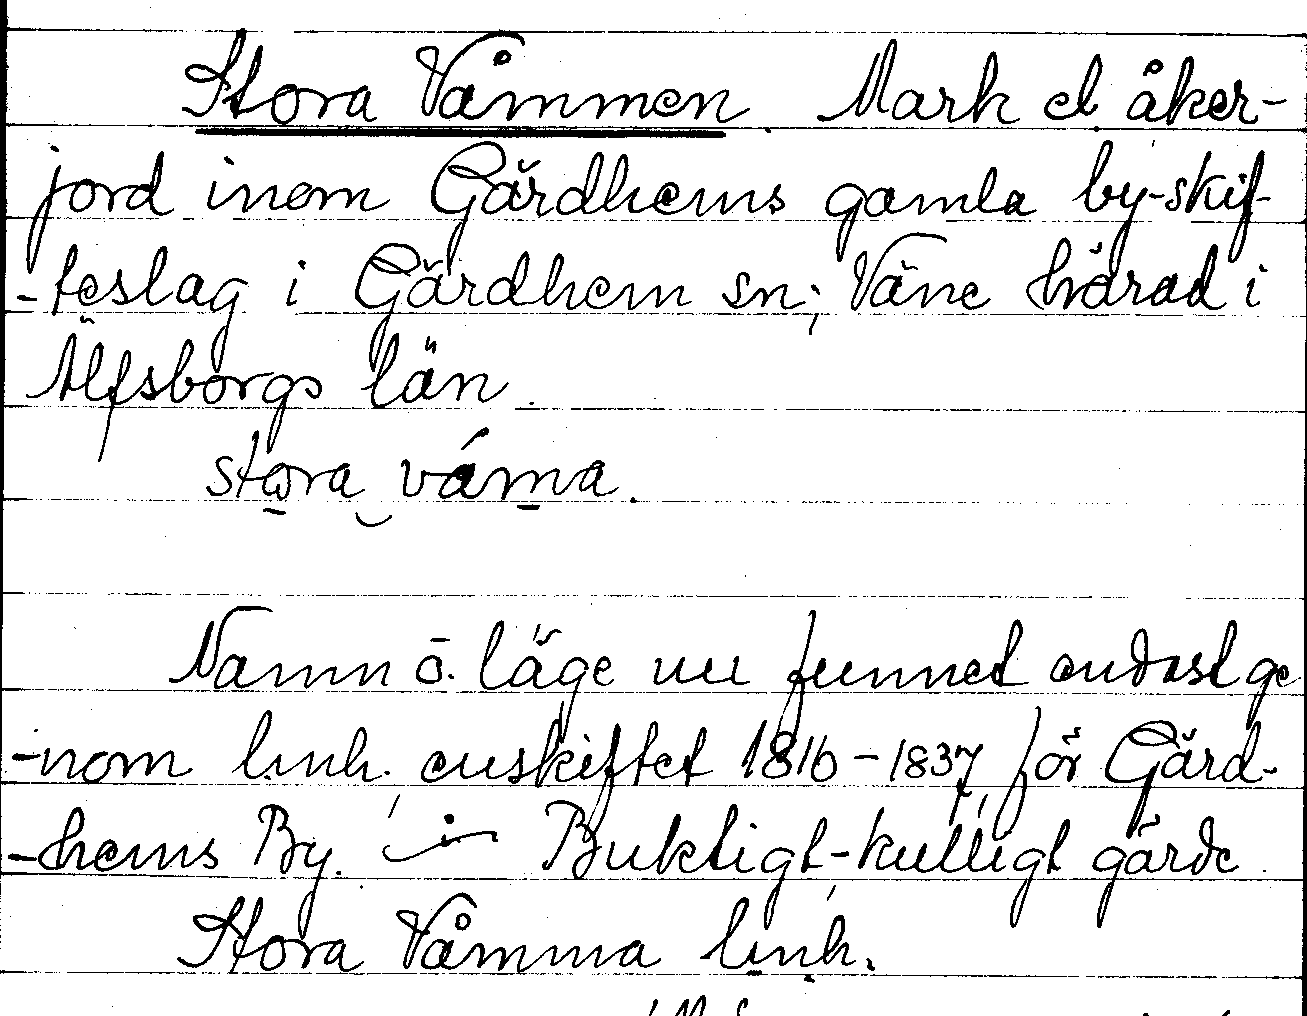 Stora Våmmen. Mark el. åker-
jord inom Gärdhems gamla by-skif-
-teslag i Gärdhem sn; Väne härad i
Älfsborgs län.
stora våma.
Namn o. läge nu funnet endast ge
-nom lmh. enskiftet 1816-1837, för Gärd-
-hems By. Buktigt-kulligt gärde
Stora Våmma lmh.